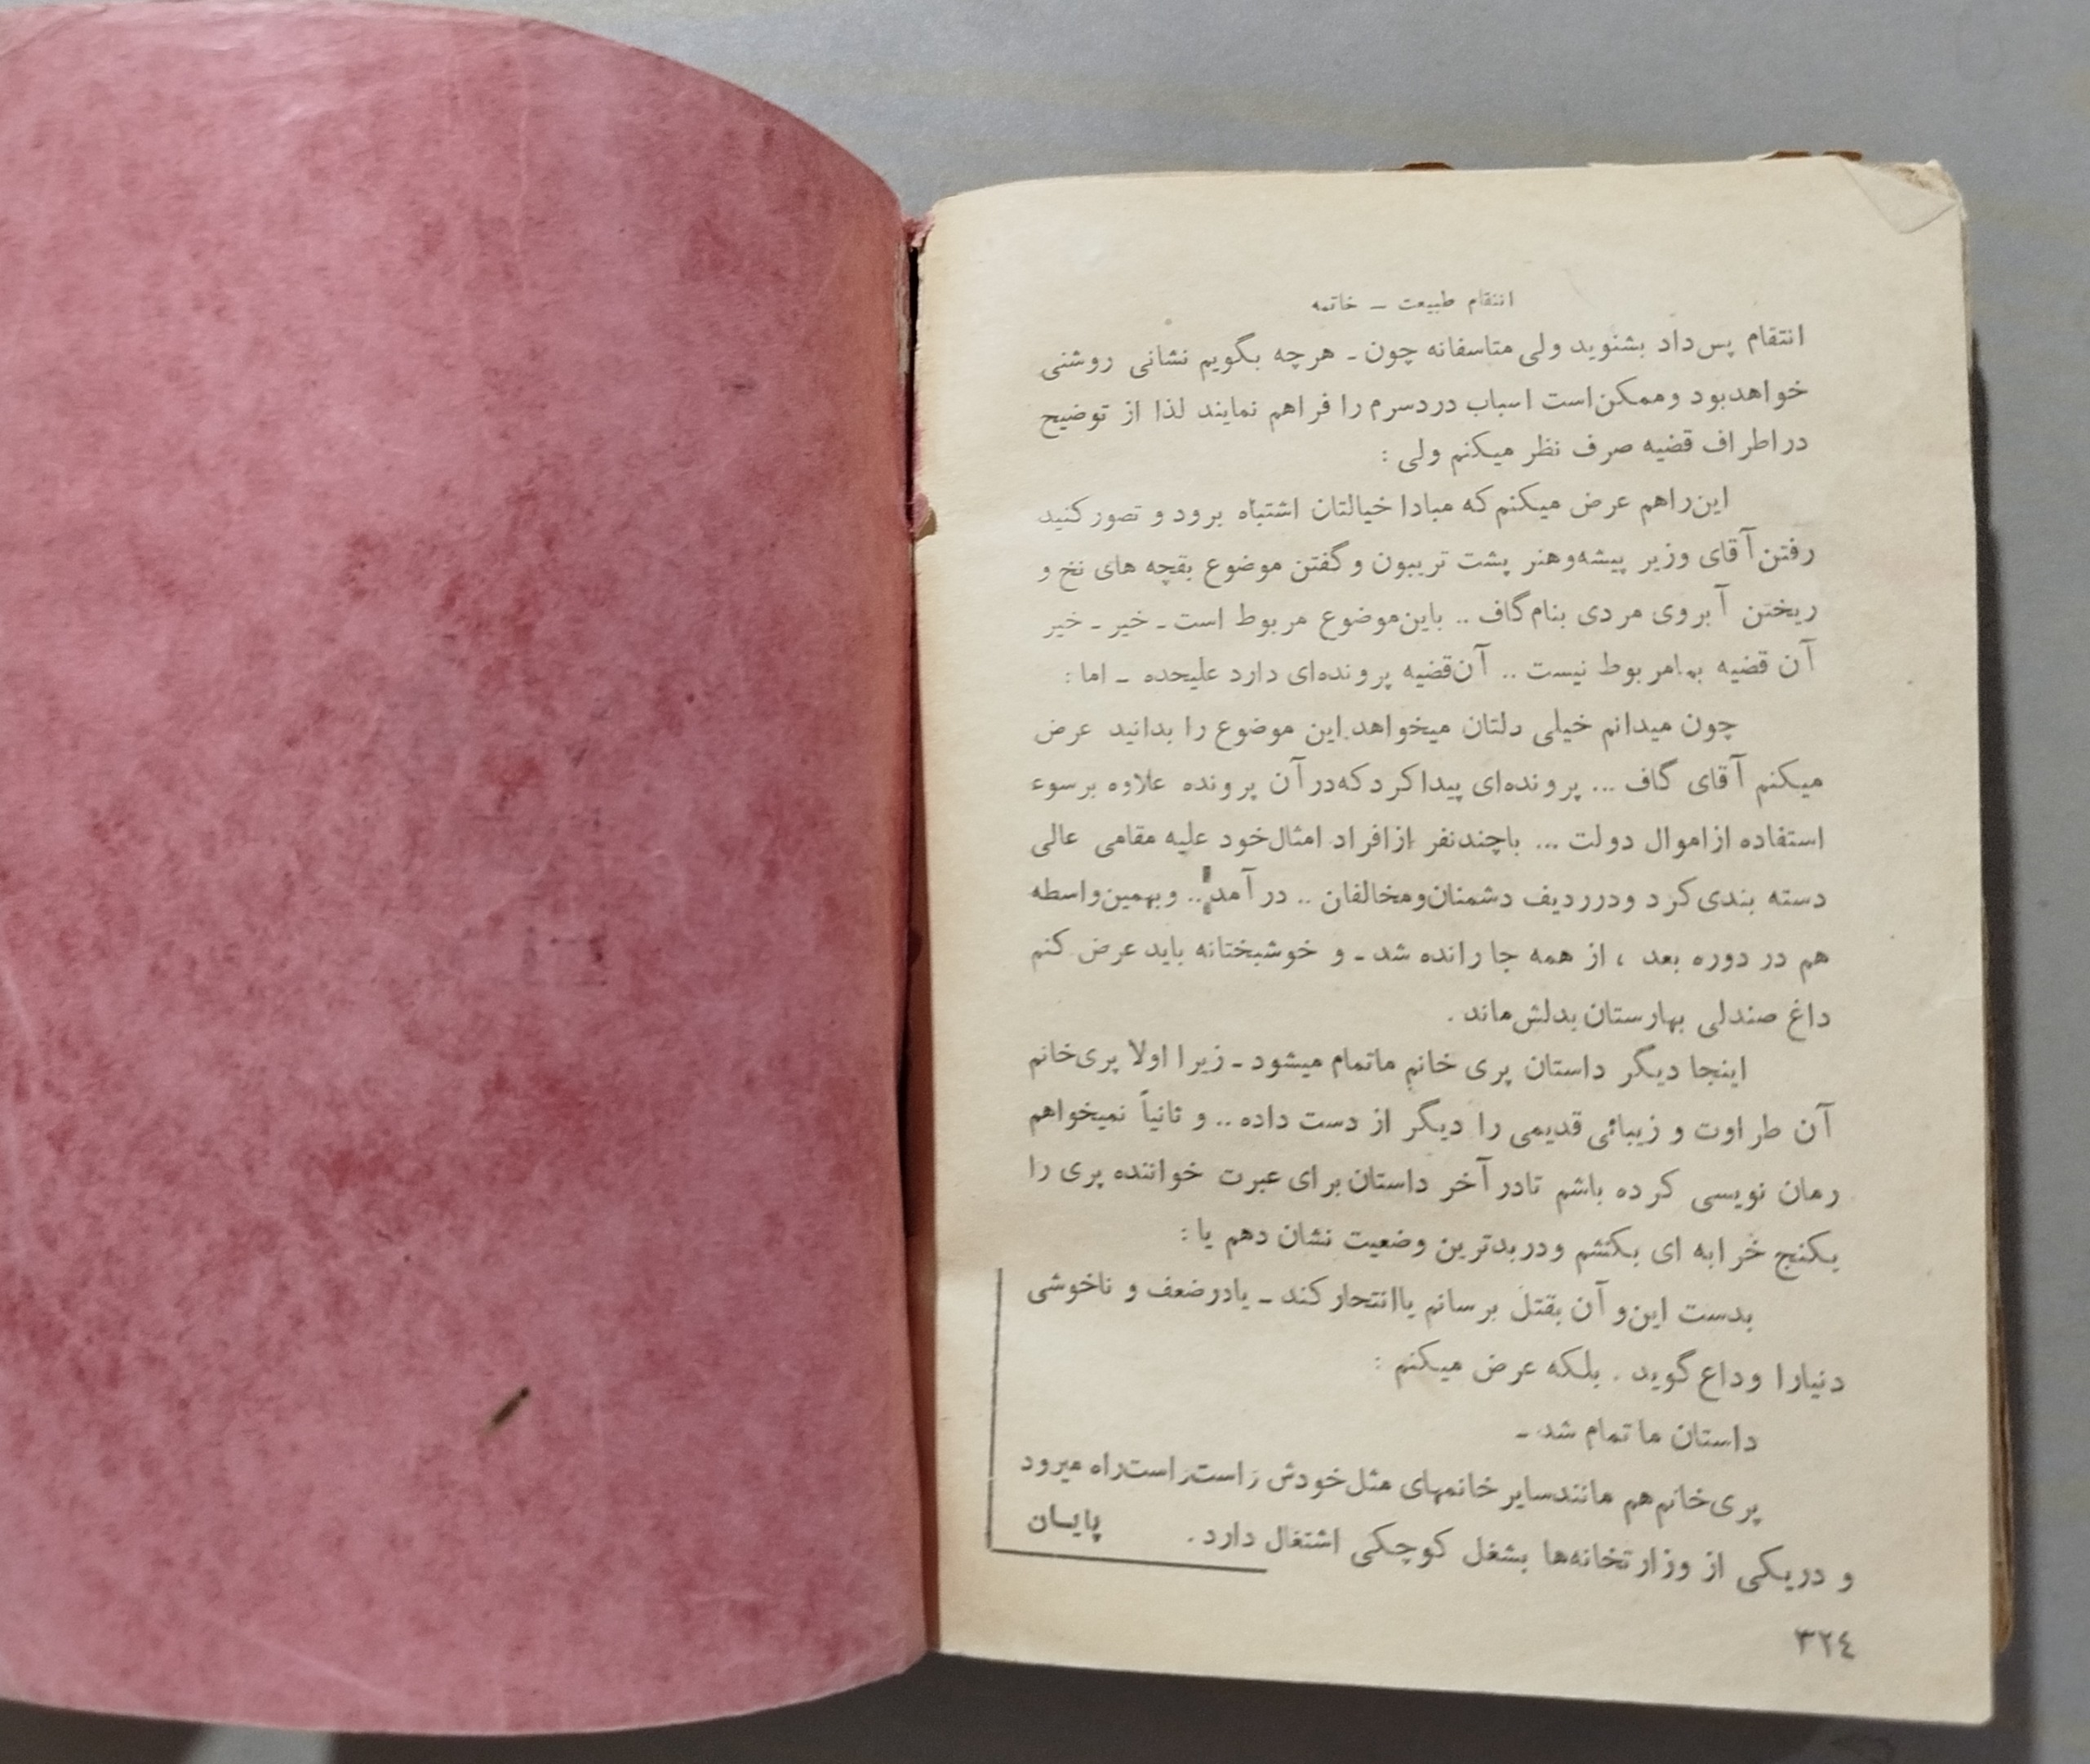 انتقام طبیعت ـ خاتمه
انتقام پس‌داد بشنوید ولی متاسفانه چون ـ هرچه بگویم نشانی روشنی
خواهدبود وممکن‌است اسباب دردسرم را فراهم نمایند لذا از توضیح
دراطراف قضیه صرف نظر میکنم ولی :
این‌راهم عرض میکنم که مبادا خیالتان اشتباه برود و تصور کنید
رفتن آقای وزیر پیشه‌وهنر پشت تریبون و گفتن موضوع بقچه های نخ و
ریختن آبروی مردی بنام گاف .. باین‌موضوع مربوط است ـ خیر ـ خیر
آن قضیه بمامربوط نیست .. آن‌قضیه پرونده‌ای دارد علیحده ـ اما :
چون میدانم خیلی دلتان میخواهد این موضوع را بدانید عرض
میکنم آقای گاف ... پرونده‌ای پیداکرد که‌درآن پرونده علاوه برسوء
استفاده ازاموال دولت ... باچندنفر ازافراد امثال‌خود علیه مقامی عالی
دسته بندی‌کرد ودرردیف دشمنان‌ومخالفان .. درآمد .. وبهمین‌واسطه
هم در دوره بعد ، از همه جا رانده شد ـ و خوشبختانه باید عرض کنم
داغ صندلی بهارستان بدلش‌ماند .
اینجا دیگر داستان پری خانم ماتمام میشود ـ زیرا اولا پری‌خانم
آن طراوت و زیبائی قدیمی را دیگر از دست داده .. و ثانیاً نمیخواهم
رمان نویسی کرده باشم تادرآخر داستان برای عبرت خواننده پری را
یکنج خرابه ای بکشم ودربدترین وضعیت نشان دهم یا :
بدست این‌و آن بقتل برسانم یاانتحارکند ـ یادرضعف و ناخوشی
دنیارا وداع گوید . بلکه عرض میکنم :
داستان ما تمام شد ـ
پری‌خانم‌هم مانندسایر خانمهای مثل‌خودش راست‌راست‌راه میرود
و دریکی از وزارتخانه‌ها بشغل کوچکی اشتغال دارد . پایــان
۳۲٤